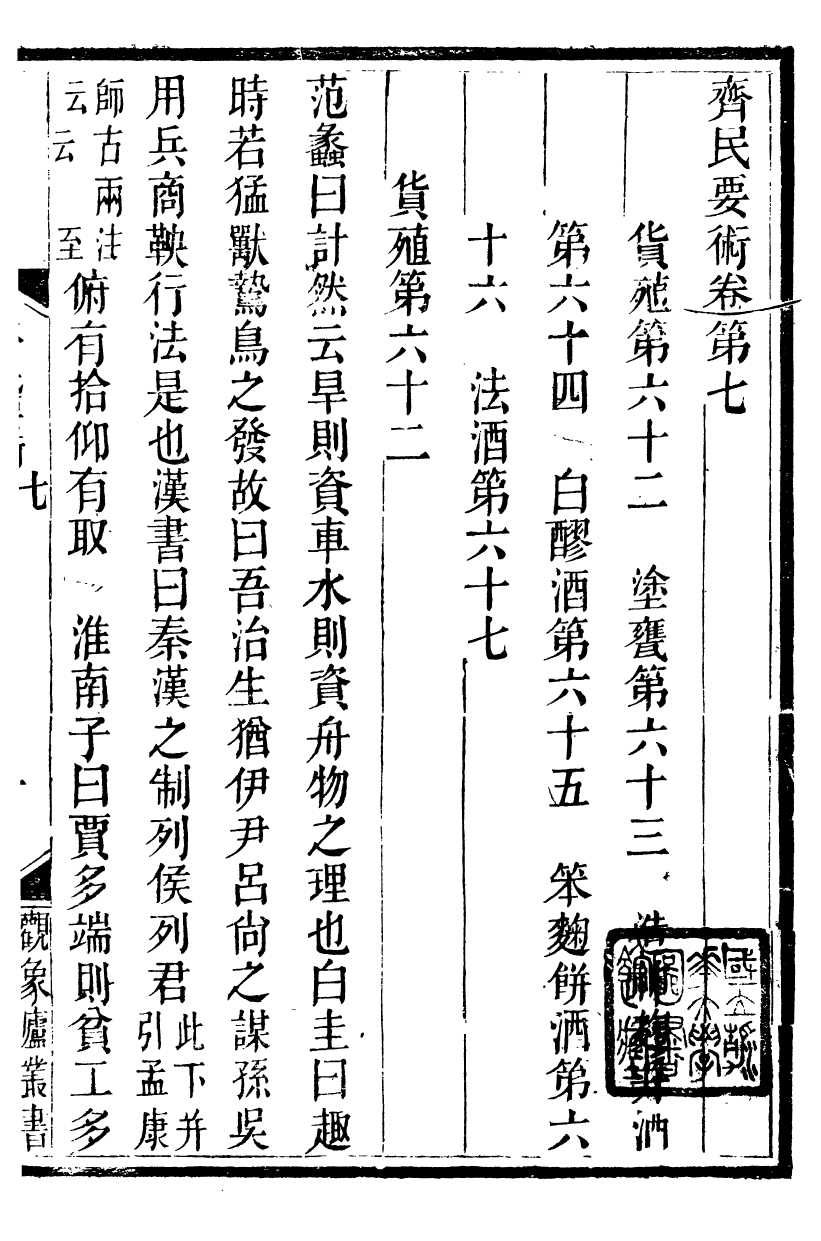 齊民要術卷第七
貨殖第六十二　塗甕第六十三　造神麴并酒
第六十四　白醪酒第六十五　笨麴餅酒第六
十六　法酒第六十七
貨殖第六十二
范蠡曰計然云旱則資車水則資舟物之理也白圭曰趣
時若猛獸鷙鳥之發故曰吾治生猶伊尹呂尙之謀孫吳
用兵商鞅行法是也漢書曰秦漢之制列侯列君此下并引孟康
師古兩注云云至俯有拾仰有取　淮南子曰賈多端則貧工多
七
觀象廬叢書
國立清華大學圖書館藏